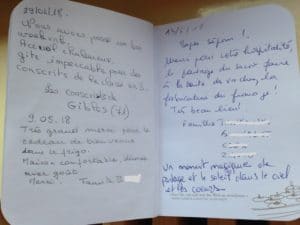 29/04/18.
Nous avons passé un bon
week-end.
Accueil chaleureux,
gîte impeccable pour des
conscrits de la classe en 3.
Les conscrits de
Gibles (71)
9.05.18
Très grand merci pour le
cadeau de bienvenue
dans le frigo.
Maison confortable,
avec goût.
Merci! Famille D
Super séjour!
Merci pour votre hospitalité,
le partage du savoir faire
à la fabrication du fromage!
Très beau lieu!
Familles T
Un moment magique de
partage et le soleil dans le ciel
et les coeurs.